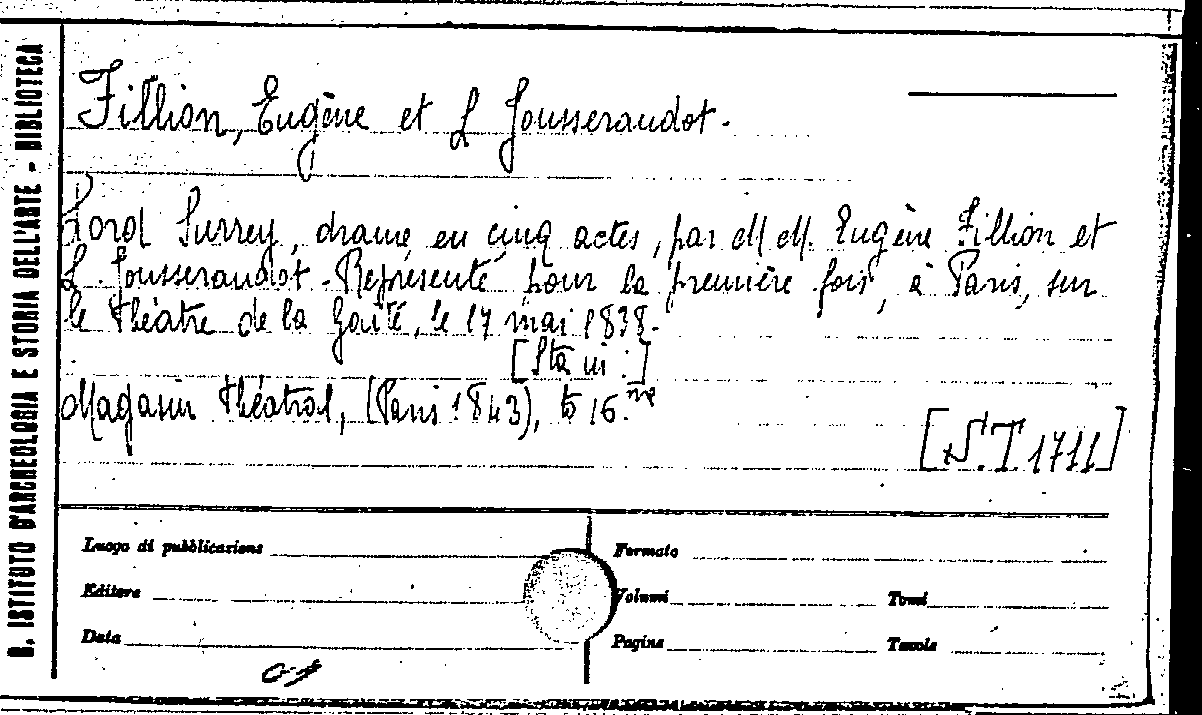 R. ISTITUTO D'ARCHEOLOGIA E STORIA DELL'ARTE - BIBLIOTECA
Fillion, Eugène et L Jousseraudot.
Lord Surrey, drame en cinq actes, par MM. Eugène Fillion et
L. Jousseraudot. Représenté, pour la première fois, à Paris, sur
le théâtre de la Gaité, le 17 mai 1838.
[Sta in:]
Magasin théatral, (Paris 1843), to 16.
[S.T. 1711]
Luogo di pubblicazione
Formato
Editore
Volumi
Tomi
Data
Pagine
Tavole